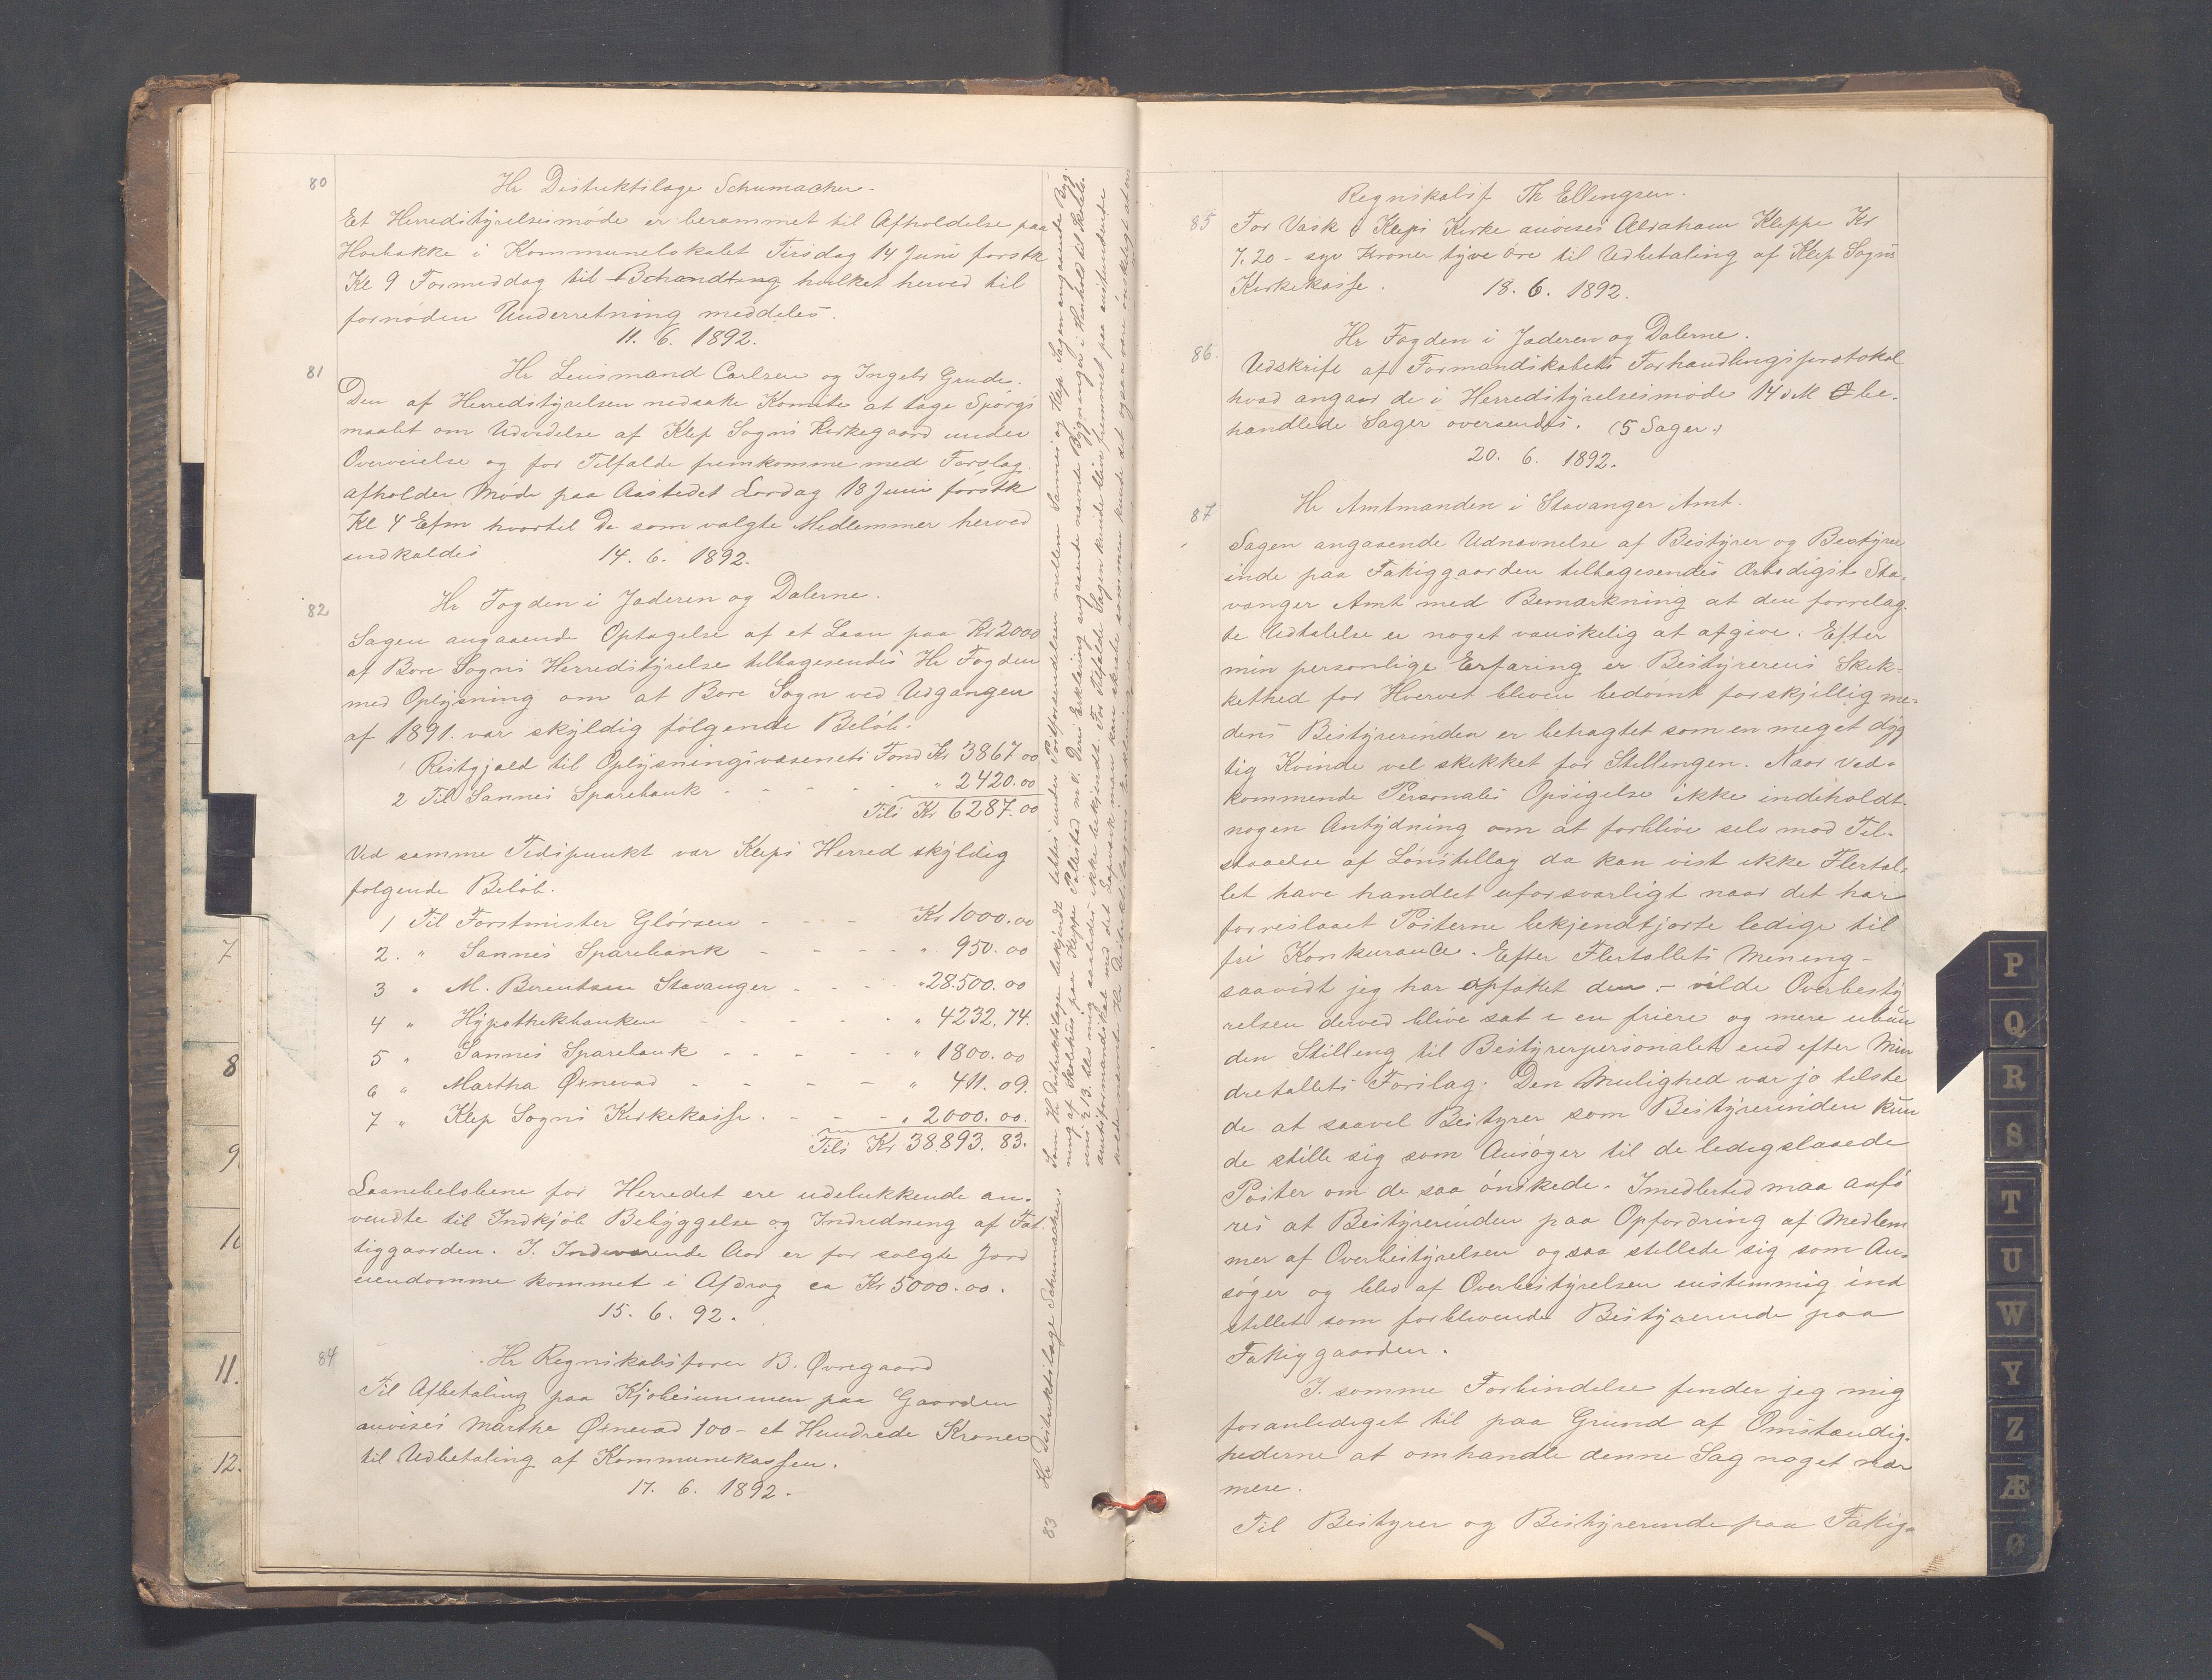 80
Hr Distriktslæge Schumacher.
Et Herredstyrelsesmøde er berammet til Afholdelse paa
Hvebakke i Kommunelokalet Tirsdag 14 Juni førstk
Kl 9 Formiddag til Behandling hvilket herved til
fornøden Underretning meddeles.
11. 6. 1892.
81
Hr Lensmand Carlsen og Ingebr Grude.
Den af Herredstyrelsen nedsatte Komite at tage Spørgs
maalet om Udvidelse af Klep Sogns Kirkegaard under
Overveielse og for Tilfælde fremkomme med Forslag
afholder Møde paa Aastedet Lørdag 18 Juni førstk
Kl 4 Efm hvortil De som valgte Medlemmer herved
indkaldes 14. 6. 1892.
82
Hr Fogden i Jæderen og Dalerne.
Sagen angaaende Optagelse af et Laan paa Kr 2000
af Bore Sogns Herredstyrelse tilbagesendes Hr Fogden
med Oplysning om at Bore Sogn ved Udgangen
af 1891. var skyldig følgende Beløb:
1 Restgjæld til Oplysningsvæsenets Fond Kr 3867 00
2 Til Sannes Sparebank - - - - " 2420.00
Tils Kr 6287.00
Ved samme Tidspunkt var Kleps Herred skyldig
følgende Beløb.
1 Til Forstmister Glørsen - - - Kr 1000.00
2. " Sannes Sparebank - - - - " 950.00
3 " M. Berentsen Stavanger - - - " 28.500.00
4 " Hypothekbanken - - - - - " 4232.74.
5 " Sannes Sparebank - - - - " 1800.00
6 " Martha Øxnevad - - - - " 411.09.
7 " Klep Sogns Kirkekasse. - - - " 2000.00.
Tils Kr 38.893.83.
Laanebeløbene for Herredet ere udelukkende an-
vendte til Indkjøb Bebyggelse og Indredning af Fat
tiggaarden. I Indeværende Aar er for solgte Jord
eiendomme kommet i Afdrag ca Kr 5000.00.
15. 6. 92.
84
Hr Regnskabsfører B. Øvregaard
Til Afbetaling paa Kjøbesummen paa Gaarden
anvises Martha Øxnevad 100 - et Hundrede Kroner
til Udbetaling af Kommunekassen.
17. 6. 1892.
83 Hr Distriktslæge Schumacher.
Som Hr Distriktslægen bekjendt sattes under Postforsendelsen mellem Sannes og Klep. Sagen angaaende Byg
ning af Skolehus paa Kleppe Pollestad m v.
85
Regnskabsf Th Ellingsen.
For Vask i Kleps Kirke anvises Abraham Kleppe Kr
7.20 - syv Kroner tyve Øre til Udbetaling af Klep Sogns
Kirkekasse. 18. 6. 1892.
86.
Hr Fogden i Jæderen og Dalerne.
Udskrift af Formandskabets Forhandlingsprotokol
hvad angaar de i Herredstyrelsesmøde 14 d M be-
handlede Sager oversendes. (5 Sager.)
20. 6. 1892.
87
Hr Amtmanden i Stavanger Amt.
Sagen angaaende Udnævnelse af Bestyrer og Bestyrer
inde paa Fattiggaarden tilbagesendes Ærbødigst Sta-
vanger Amt med Bemærkning at den forrelag-
te Udtalelse er noget vanskelig at afgive. Efter
min personlige Erfaring er Bestyrerens Skik-
kethed for Hvervet bleven bedømt forskjellig me-
dens Bestyrerinden er betragtet som en meget dyg
tig Kvinde vel skikket for Stillingen. Naar Ved-
kommende Personales Opsigelse ikke indeholdt
nogen Antydning om at forblive selv mod Til-
staaelse af Lønstillæg da kan vist ikke Flertal-
let have handlet uforsvarligt naar det har
forreslaaet Posterne bekjendtgjorte ledige til
fri Konkurance. Efter Flertallets Mening -
saavidt jeg har opfattet den - vilde Overbesty
relsen derved blive sat i en friere og mere ubun
den Stilling til Bestyrerpersonalet end efter Min
dretallets Forslag. Den Mulighed var jo tilste
de at saavel Bestyrer som Bestyrerinden kun
de stille sig som Ansøger til de ledigslaaede
Poster om de saa ønskede. Imidlertid maa anfø
res at Bestyrerinden paa Opfordring af Medlem
mer af Overbestyrelsen ogsaa stillede sig som An-
søger og blev af Overbestyrelsen enstemmig ind
stillet som forblivende Bestyrerinde paa
Fattiggaarden.
I samme Forbindelse finder jeg mig
foranlediget til paa Grund af Omstændig-
hederne at omhandle denne Sag noget nær
mere.
Til Bestyrer og Bestyrerinde paa Fattig-
7
8
9
10
11.
12.
P
Q
R
S
T
U
W
Y
Z
Æ
Ø